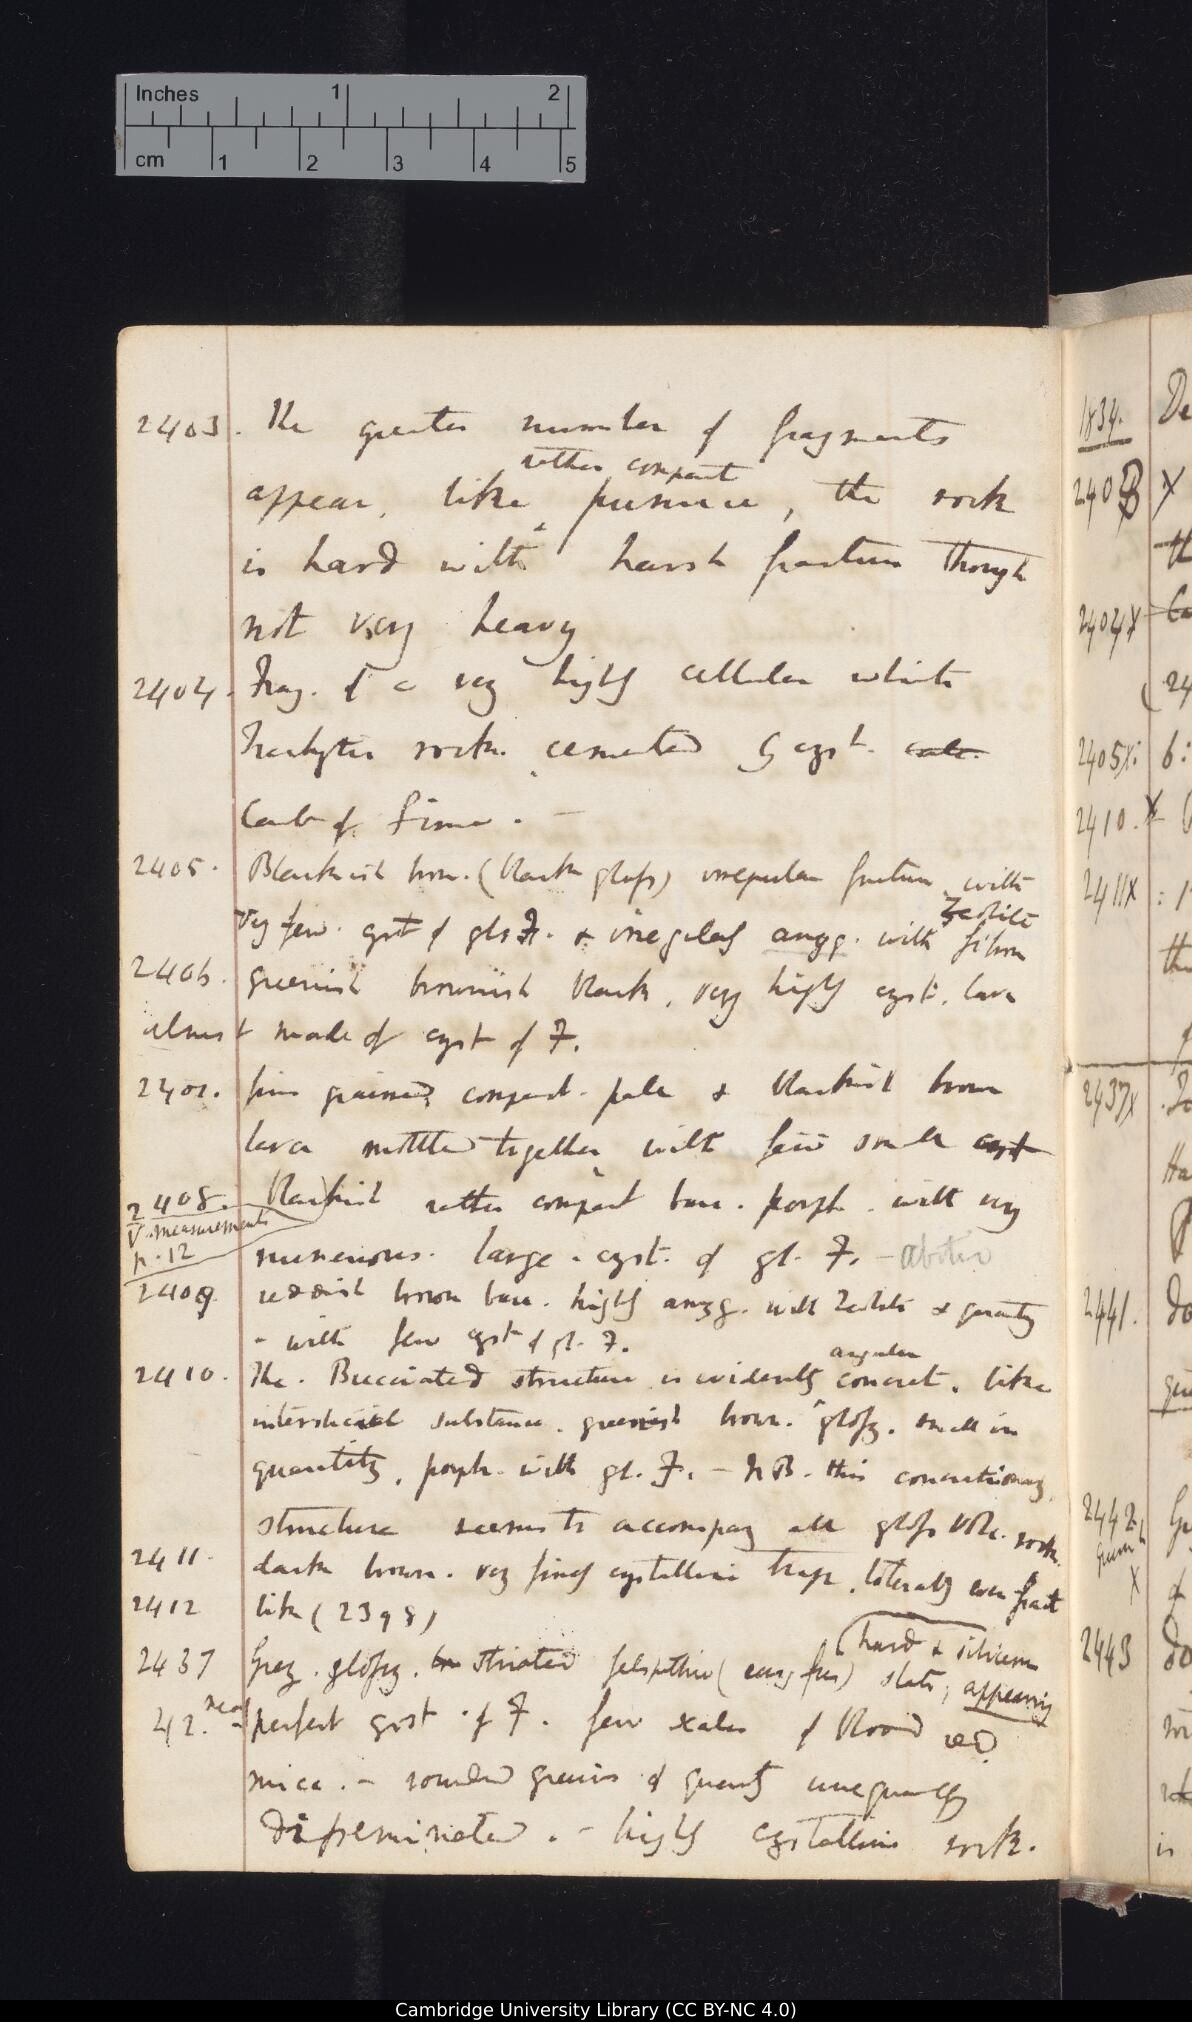 Inches 1 2
cm 1 2 3 4 5
2403. The greater number of fragments
rather compact
appear, like pumice, the rock
is hard with harsh fracture though
not very heavy
2404. Frag. of a very highly cellular white
Trachytic rock. cemented by cryst. calc.
Carb of Lime. —
2405. Blackish brown. (black glass) irregular fracture, with
Zeolite
very few. cryst of gls F. & irregularly amyg. with
2406. greenish brownish black, very highly cryst. lava
almost made of cryst of F.
fine grained, compact. pale & blackish brown
lava mottled together, with few small cryst
2408. Blackish rather compact base. porph. with very
V. measurements
p. 12
numerous. large. cryst. of gl. F. —
2409 reddish brown base. highly amyg. with Zeolite &
— with few cryst of gl. F.
angular
2410. The. Brecciated structure is evidently concret. like
interstitial substance. greenish brown. glossy. small in
quantity, porph. with gl. F. — NB. this concretionary
structure seems to accompany all glass Volc. rock.
2411. dark brown. very finely crystalline trap, tolerably even fract
2412 like (2398)
hard & siliceous
2437 Grey. glossy. striated felspathic (easy fus) slate, appearing
near
42. — perfect cryst of F. few scales of blood red
mica. — rounded grains of quartz unequally
disseminated. — highly crystalline rock.
1834.
2403 X
2404X
2405X:
2410. X
2411X
2437X
2441.
2442
X
2443
Cambridge University Library (CC BY-NC 4.0)